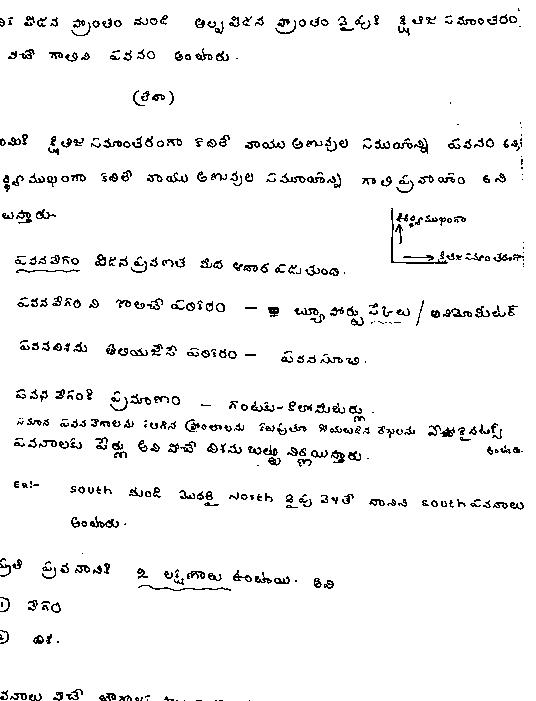 పీడన ప్రాంతం నుండి అల్ప పీడన ప్రాంతం వైపుకి క్షితిజ సమాంతరం
వీచే గాలిని పవనం అంటారు.
(లేదా)
క్షితిజ సమాంతరంగా కదిలే వాయు అణువుల సముదాయాన్ని పవనం అని,
ఊర్ధ్వముఖంగా కదిలే వాయు అణువుల సముదాయాన్ని గాలి ప్రవాహం అని
ఊర్ధ్వముఖంగా
క్షితిజ సమాంతరంగా
పవనవేగం పీడన ప్రవణత మీద ఆధారపడుతుంది.
పవనవేగంని కొలిచే పరికరం - బ్యూఫోర్టు స్కేలు / అనిమోమీటర్
పవనదిశను తెలియజేసే పరికరం - పవనసూచి.
పవన వేగంకి ప్రమాణం - గంటకు-కిలోమీటర్లు.
సమాన పవనవేగాలను కలిగిన ప్రాంతాలను కలుపుతూ గీయబడిన రేఖలను
అంటారు.
పవనాలకు పేర్లు అవి వీచే దిశను బట్టి నిర్ణయిస్తారు.
Ex:- South నుండి మొదలై North వైపు వెళితే దానిని South పవనాలు
అంటారు.
ప్రతి పవనానికి 2 లక్షణాలు ఉంటాయి. అవి
① వేగం
② దిశ.